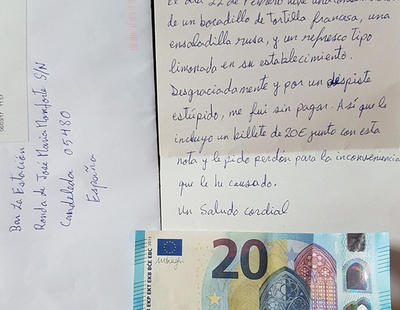 El día 22 de Febrero
de un bocadillo de Tortilla francesa, una
ensaladilla rusa, y un refresco tipo
limonada en su establecimiento.
Desgraciadamente y por un despiste
estúpido, me fui sin pagar. Así que le
incluyo un billete de 20€ junto con esta
nota y le pido perdón para la inconveniencia
que le he causado.
Un Saludo cordial
Bar La Estación
Ronda de José María Monforte S/N
Candeleda 05480
España
20